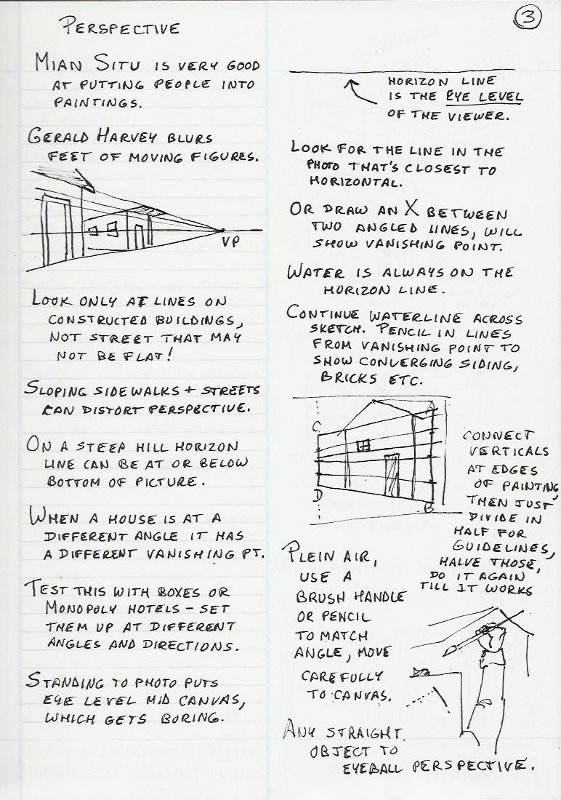 3
PERSPECTIVE
MIAN SITU IS VERY GOOD
AT PUTTING PEOPLE INTO
PAINTINGS.
GERALD HARVEY BLURS
FEET OF MOVING FIGURES.
VP
LOOK ONLY AT LINES ON
CONSTRUCTED BUILDINGS,
NOT STREET THAT MAY
NOT BE FLAT!
SLOPING SIDEWALKS + STREETS
CAN DISTORT PERSPECTIVE.
ON A STEEP HILL HORIZON
LINE CAN BE AT OR BELOW
BOTTOM OF PICTURE.
WHEN A HOUSE IS AT A
DIFFERENT ANGLE IT HAS
A DIFFERENT VANISHING PT.
TEST THIS WITH BOXES OR
MONOPOLY HOTELS - SET
THEM UP AT DIFFERENT
ANGLES AND DIRECTIONS.
STANDING TO PHOTO PUTS
EYE LEVEL MID CANVAS,
WHICH GETS BORING.
HORIZON LINE
IS THE EYE LEVEL
OF THE VIEWER.
LOOK FOR THE LINE IN THE
PHOTO THAT'S CLOSEST TO
HORIZONTAL.
OR DRAW AN X BETWEEN
TWO ANGLED LINES, WILL
SHOW VANISHING POINT.
WATER IS ALWAYS ON THE
HORIZON LINE.
CONTINUE WATERLINE ACROSS
SKETCH. PENCIL IN LINES
FROM VANISHING POINT TO
SHOW CONVERGING SIDING,
BRICKS ETC.
A
C
D
B
CONNECT
VERTICALS
AT EDGES
OF PAINTING,
THEN JUST
DIVIDE IN
HALF FOR
GUIDELINES,
HALVE THOSE,
DO IT AGAIN
TILL IT WORKS
PLEIN AIR,
USE A
BRUSH HANDLE
OR PENCIL
TO MATCH
ANGLE, MOVE
CAREFULLY
TO CANVAS.
ANY STRAIGHT
OBJECT TO
EYEBALL PERSPECTIVE.